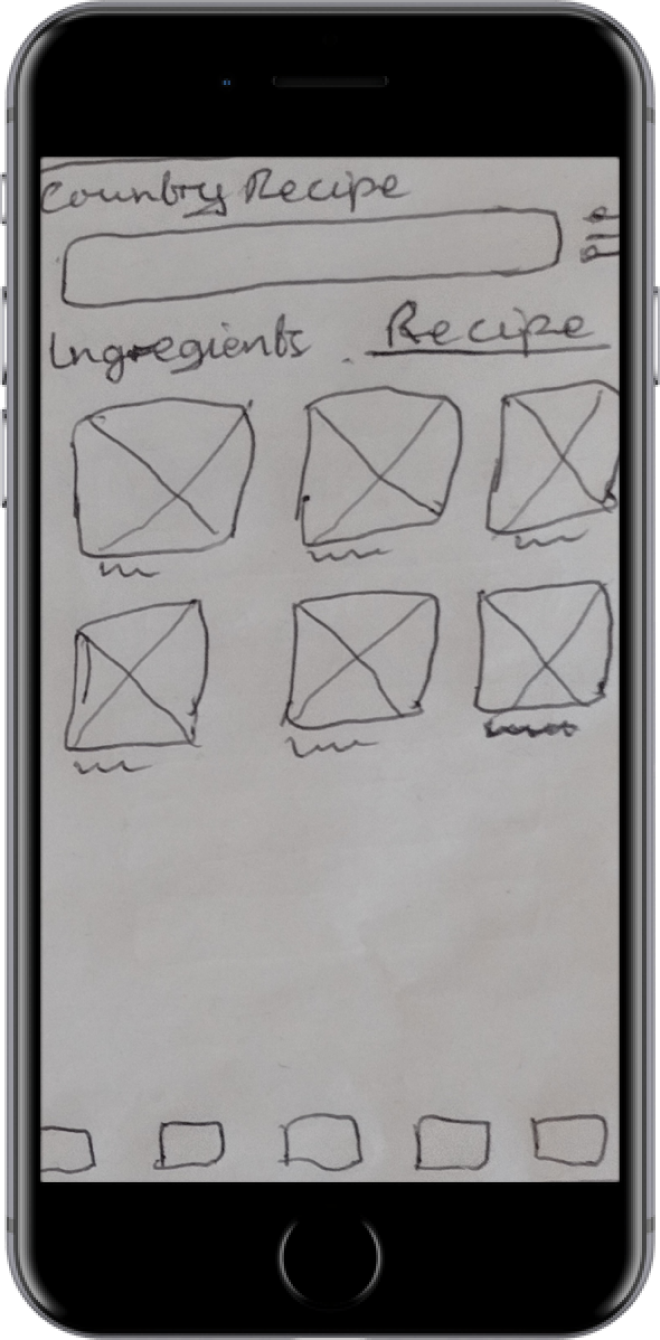 Country Recipe
Ingregients Recipe